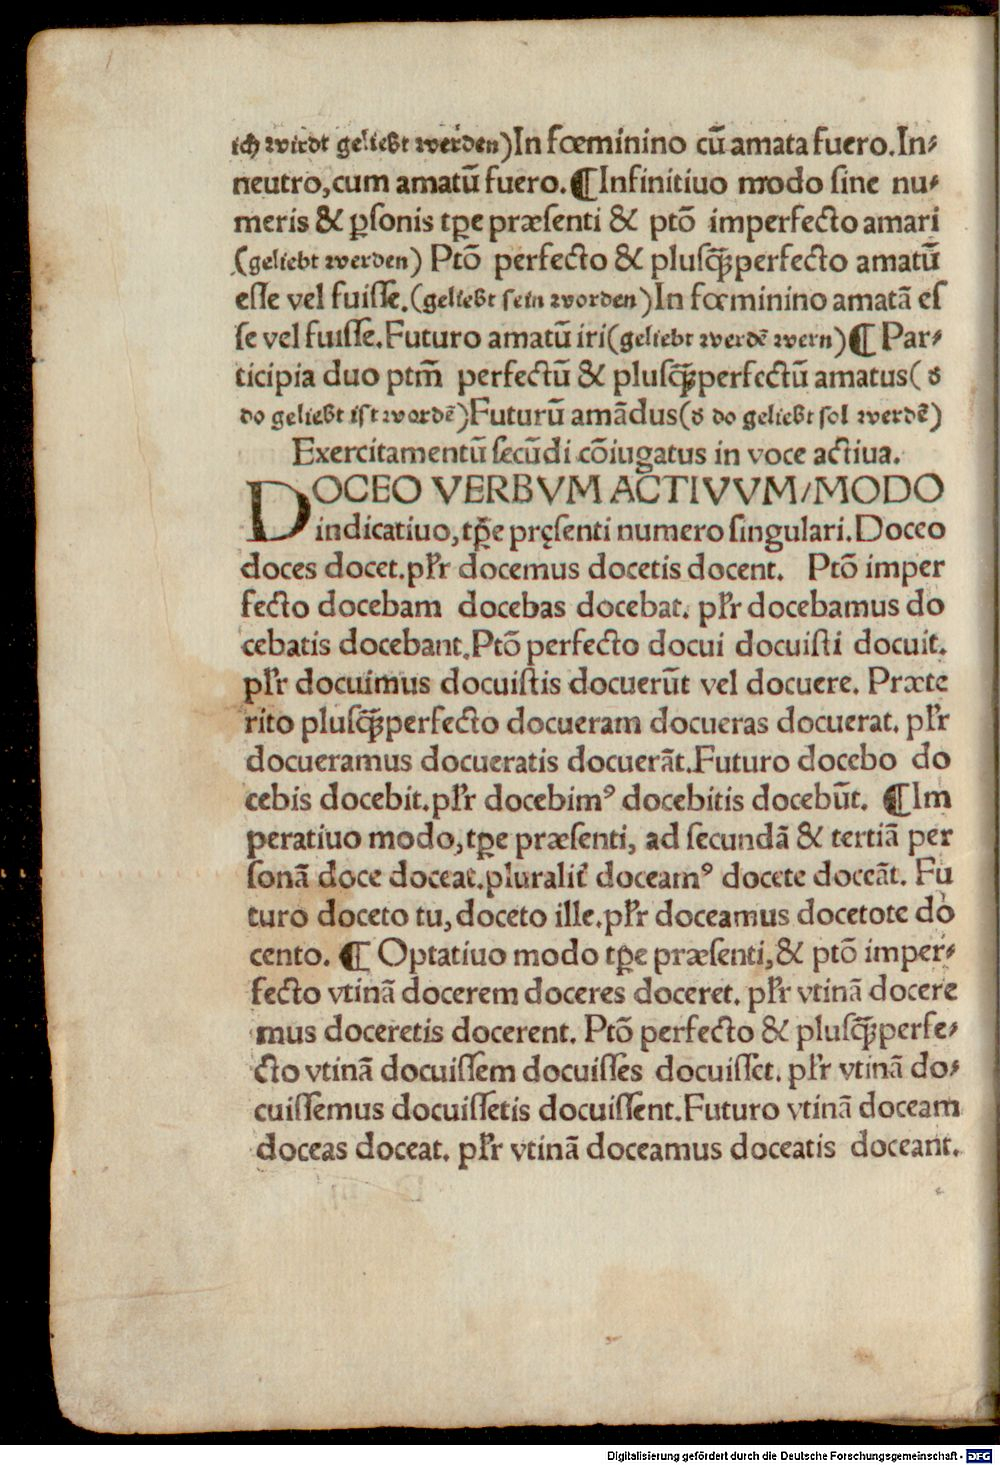 ich wirdt geliebt werden)In fœminino cū amata fuero.In⸗
neutro,cum amatū fuero.¶Infinitiuo modo ſine nu⸗
meris & ꝑſonis tꝑe præſenti & ptō imperfecto amari
(geliebt werden) Ptō perfecto & pluſqꝫperfecto amatū
eſſe vel fuiſſe.(geliebt ſein worden)In fœminino amatā eſ
ſe vel fuiſſe.Futuro amatū iri(geliebt werdē wern)¶ Par⸗
ticipia duo ptm̄ perfectū & pluſqꝫperfectū amatus( ď
do geliebt iſt wordē)Futurū amādus(ď do geliebt ſol werdē)
Exercitamentū ſecūdi cōiugatus in voce actiua.
DOCEO VERBVM ACTIVVM/MODO
indicatiuo,tꝑe pręſenti numero ſingulari.Doceo
doces docet.płr docemus docetis docent. Ptō imper
fecto docebam docebas docebat. płr docebamus do
cebatis docebant.Ptō perfecto docui docuiſti docuit.
płr docuimus docuiſtis docuerūt vel docuere. Præte
rito pluſqꝫperfecto docueram docueras docuerat. płr
docueramus docueratis docuerāt.Futuro docebo do
cebis docebit.płr docebimꝰ docebitis docebūt. ¶Im
peratiuo modo,tꝑe præſenti, ad ſecundā & tertiā per
ſonā doce doceat.pluralit̄ doceamꝰ docete doceāt. Fu
turo doceto tu, doceto ille.płr doceamus docetote do
cento. ¶ Optatiuo modo tꝑe præſenti,& ptō imper⸗
fecto vtinā docerem doceres doceret. płr vtinā docere
mus doceretis docerent. Ptō perfecto & pluſqꝫperfe⸗
cto vtinā docuiſſem docuiſſes docuiſſet. płr vtinā do⸗
cuiſſemus docuiſſetis docuiſſent.Futuro vtinā doceam
doceas doceat. płr vtinā doceamus doceatis doceant.
Digitalisierung gefördert durch die Deutsche Forschungsgemeinschaft - DFG